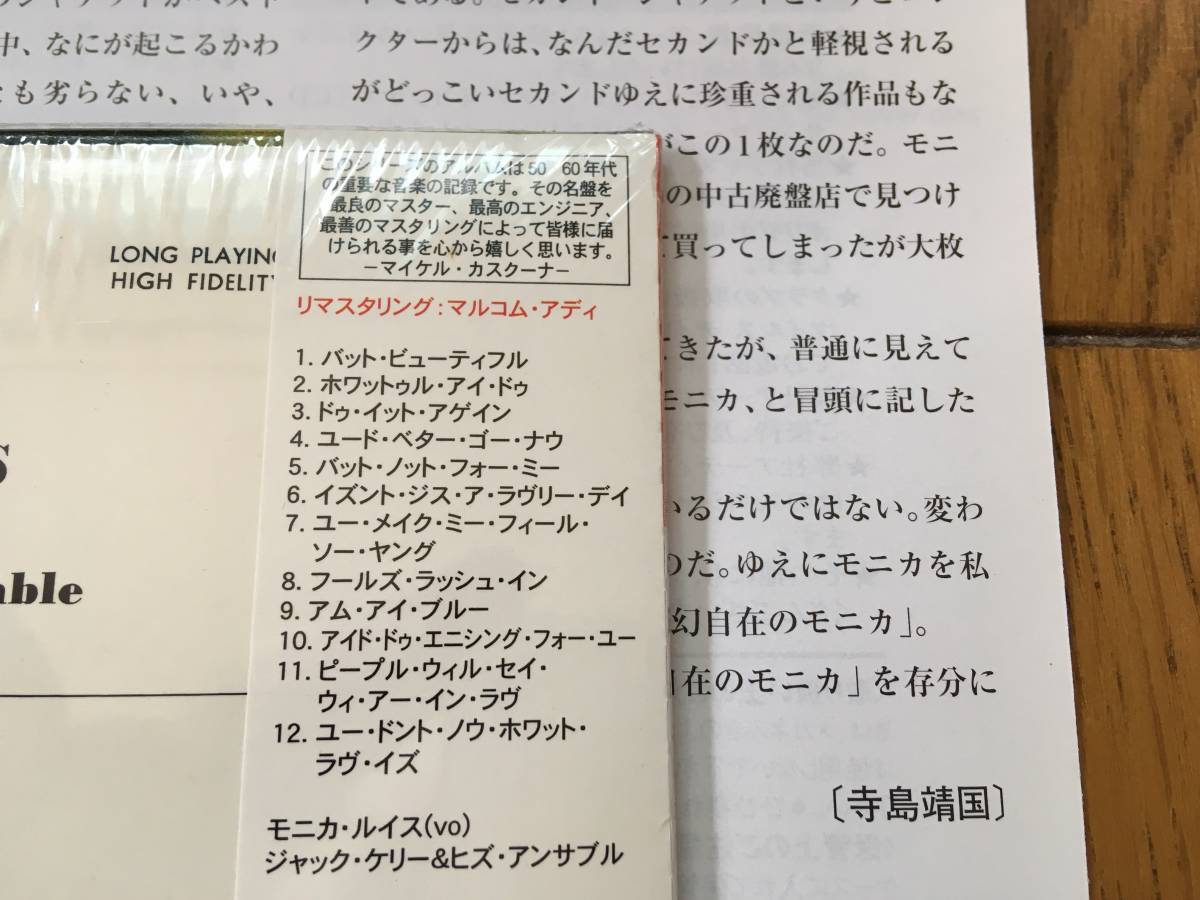 中、なにが起こるかわ
も劣らない、いや、
クターからは、なんだセカンドかと軽視される
がどっこいセカンドゆえに珍重される作品もな
がこの1枚なのだ。モニ
の中古廃盤店で見つけ
て買ってしまったが大枚
てきたが、普通に見えて
モニカ、と冒頭に記した
いるだけではない。変わ
のだ。ゆえにモニカを私
幻自在のモニカ」。
自在のモニカ」を存分に
〔寺島靖国〕
LONG PLAYING
HIGH FIDELITY
S
able
このシリーズのアルバムは50 60年代
の重要な音楽の記録です。その名盤を
最良のマスター、最高のエンジニア、
最善のマスタリングによって皆様に届
けられる事を心から嬉しく思います。
−マイケル・カスクーナ−
リマスタリング:マルコム・アディ
1. バット・ビューティフル
2. ホワットゥル・アイ・ドゥ
3. ドゥ・イット・アゲイン
4. ユード・ベター・ゴー・ナウ
5. バット・ノット・フォー・ミー
6. イズント・ジス・ア・ラヴリー・デイ
7. ユー・メイク・ミー・フィール・
ソー・ヤング
8. フールズ・ラッシュ・イン
9. アム・アイ・ブルー
10. アイド・ドゥ・エニシング・フォー・ユー
11. ピープル・ウィル・セイ・
ウィ・アー・イン・ラヴ
12. ユー・ドント・ノウ・ホワット・
ラヴ・イズ
モニカ・ルイス(vo)
ジャック・ケリー&ヒズ・アンサブル